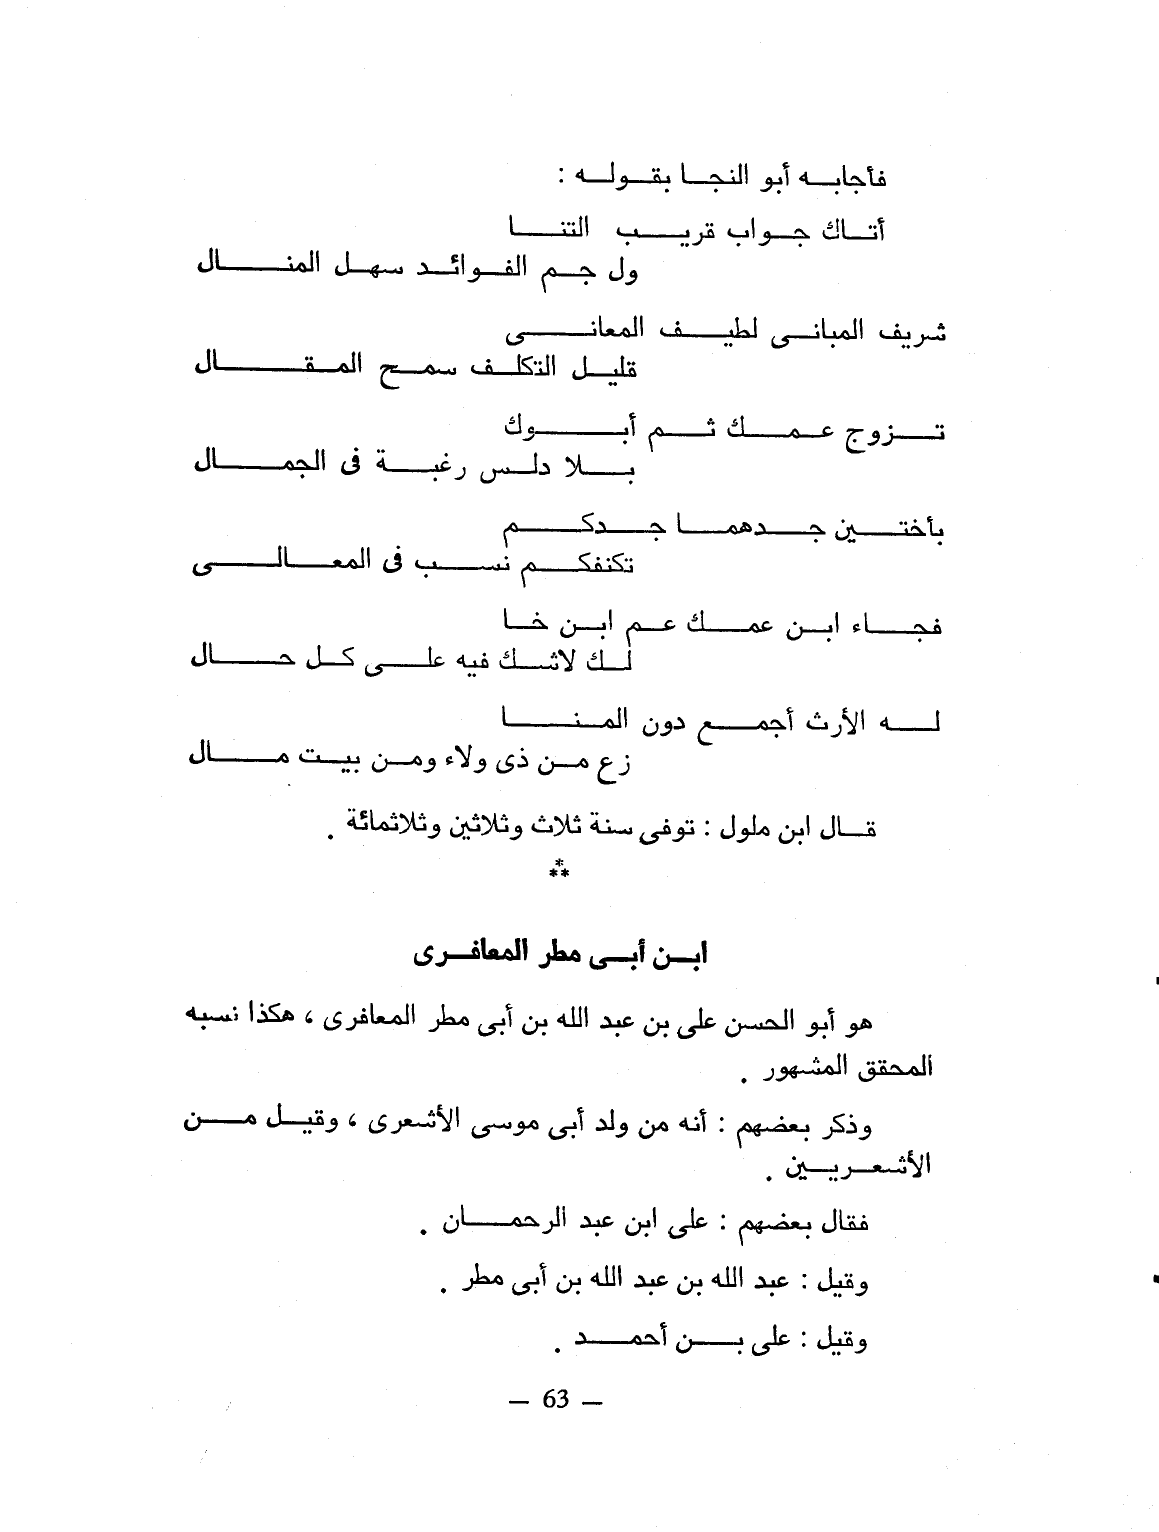 فأجابه أبو النجا بقوله :
أتاك جواب قريب التنا
ول جم الفوائد سهل المنال
شريف المبانى لطيف المعانى
قليل التكلف سمح المقال
تزوج عمك ثم أبوك
بلا دلس رغبة فى الجمال
بأختين جدهما جدكم
تكنفكم نسب فى المعالى
فجاء ابن عمك عم ابن خا
لك لاشك فيه على كل حال
له الأرث أجمع دون المنا
زع من ذى ولاء ومن بيت مال
قال ابن ملول : توفى سنة ثلاث وثلاثين وثلاثمائة .
***
ابن أبى مطر المعافرى
هو أبو الحسن على بن عبد الله بن أبى مطر المعافرى ، هكذا نسبه
المحقق المشهور .
وذكر بعضهم : أنه من ولد أبى موسى الأشعرى ، وقيل من
الأشعريين .
فقال بعضهم : على ابن عبد الرحمان .
وقيل : عبد الله بن عبد الله بن أبى مطر .
وقيل : على بن أحمد .
— 63 —